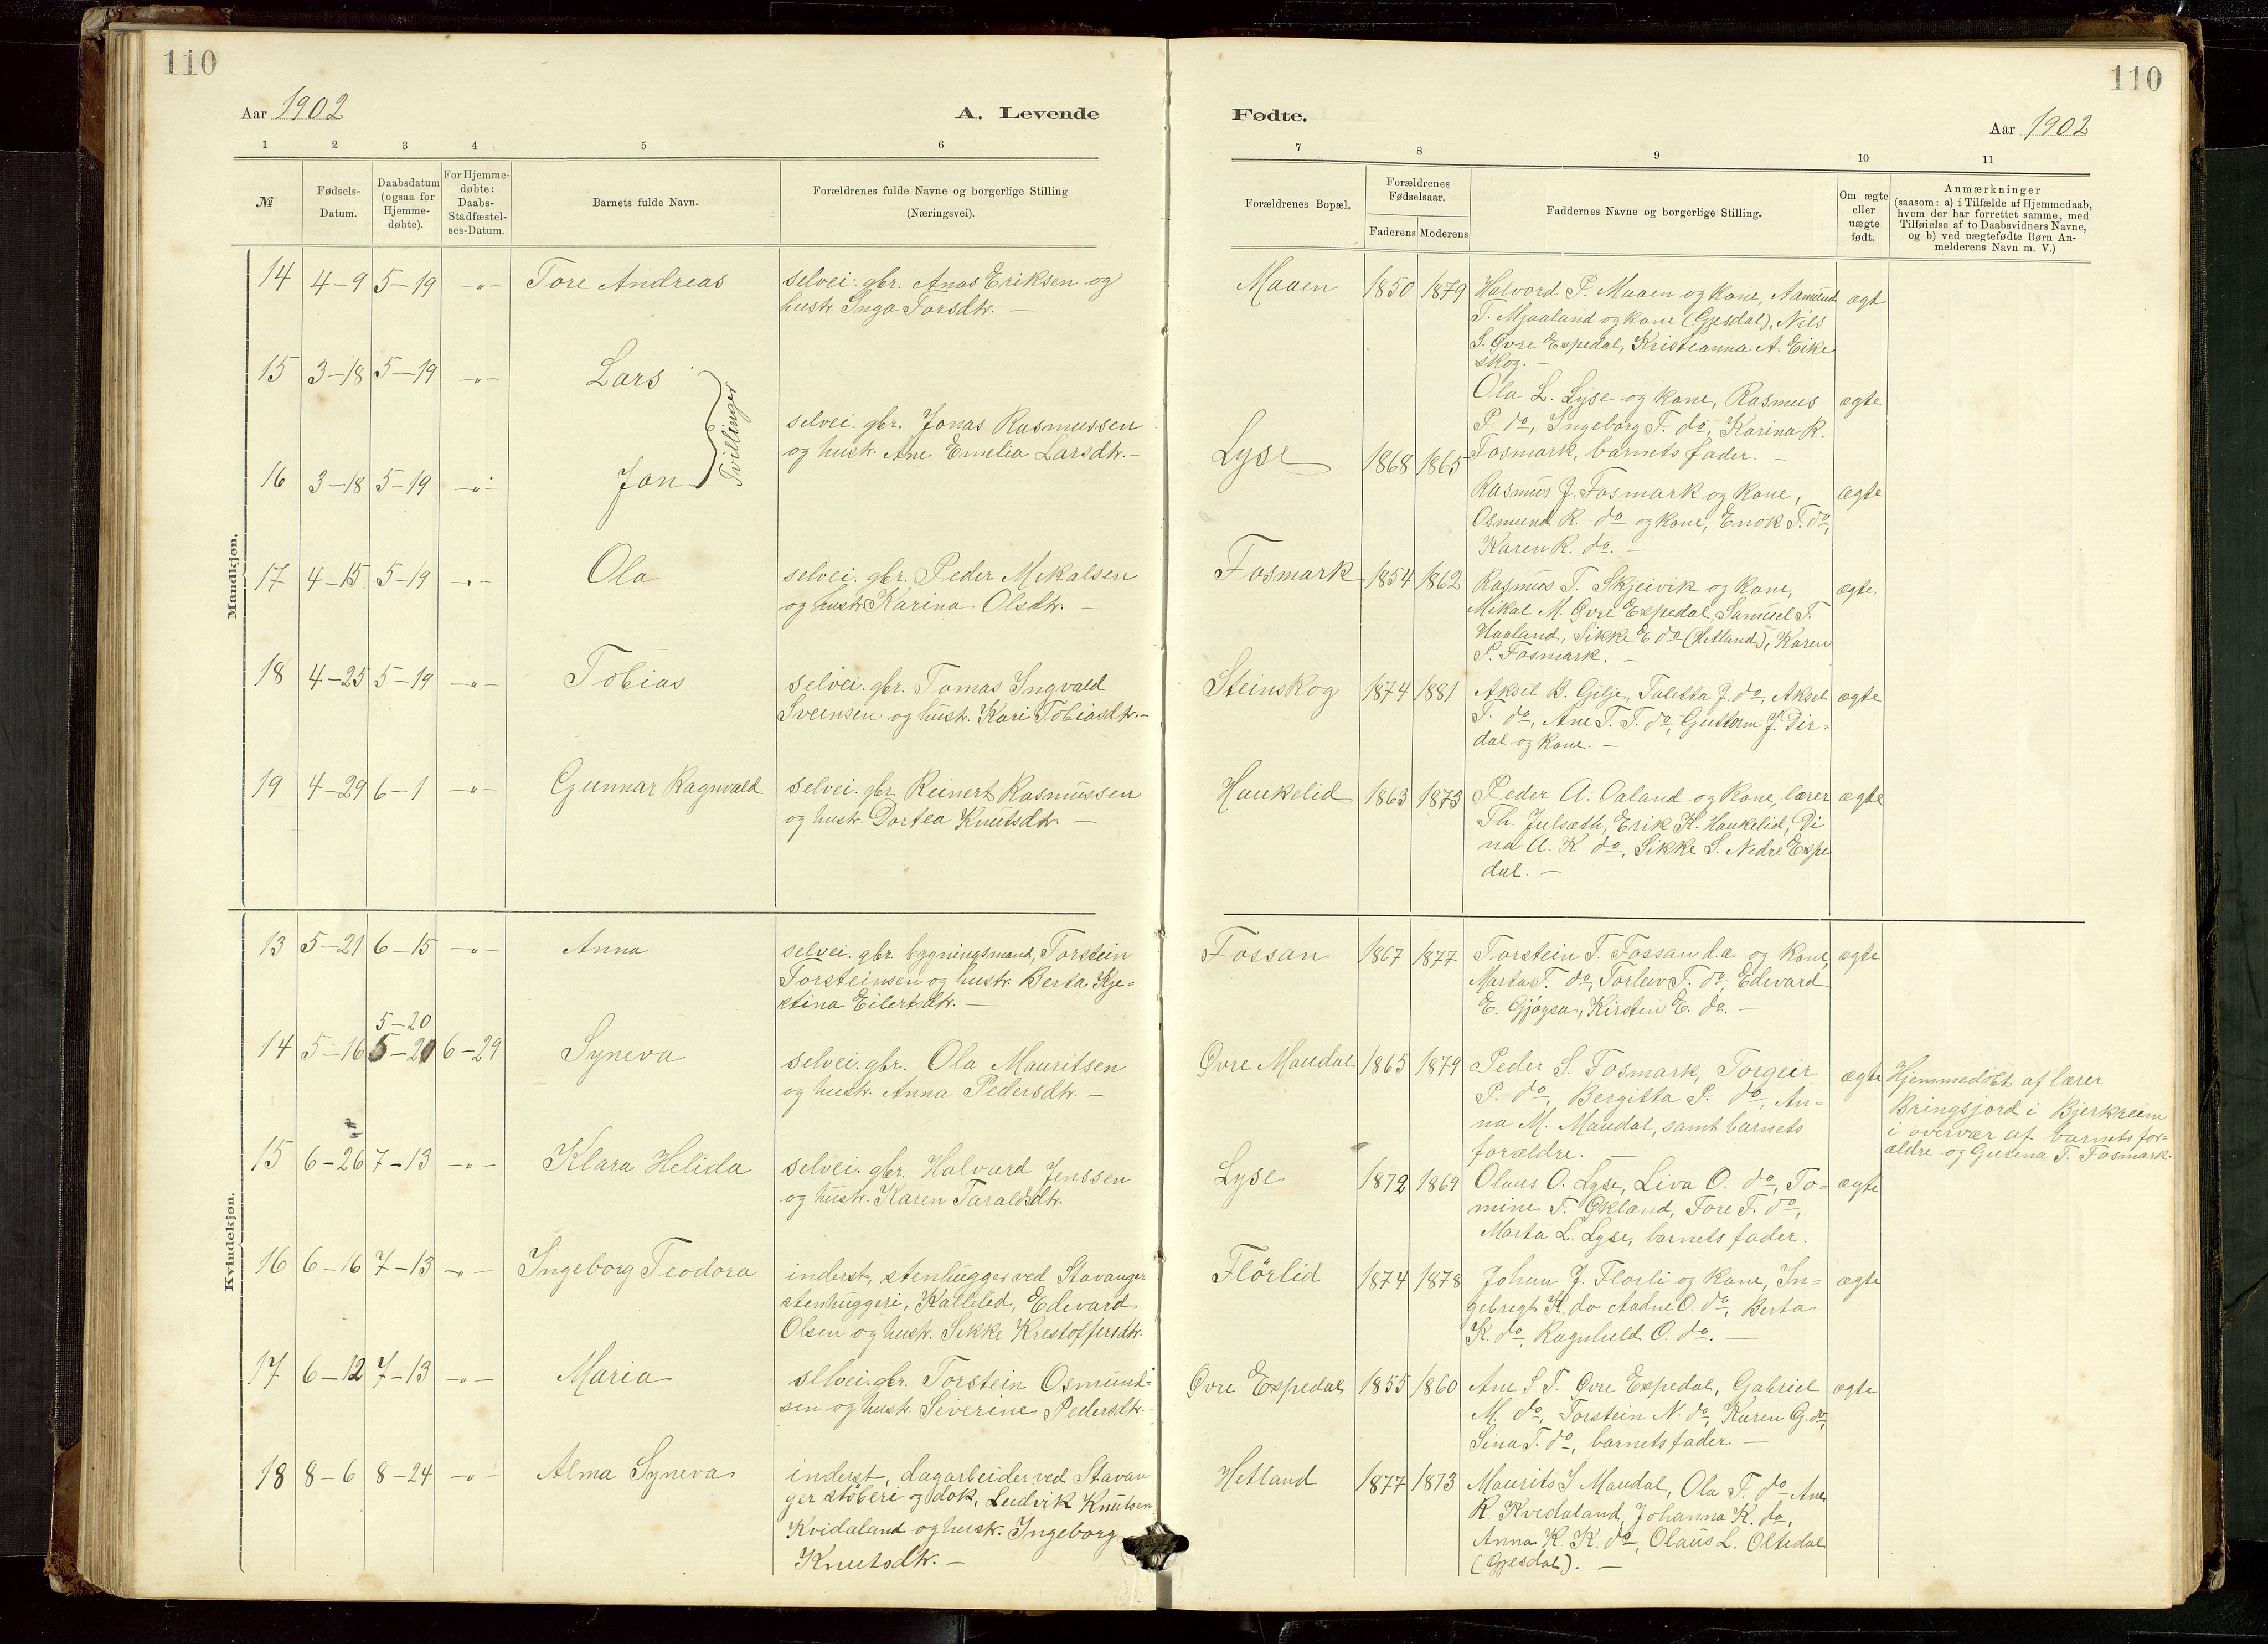 110
110
Aar 1902
A. Levende
Fødte.
Aar 1902
1 2 3 4 5 6 7 8 9 10 11
№
Fødsels-Datum.
Daabsdatum (ogsaa for Hjemme-døbte).
For Hjemme-døbte: Daabs-Stadfæstel-ses-Datum.
Barnets fulde Navn.
Forældrenes fulde Navne og borgerlige Stilling (Næringsvei).
Forældrenes Bopæl.
Forældrenes Fødselsaar.
Faderens Moderens
Faddernes Navne og borgerlige Stilling.
Om ægte eller uægte født.
Anmærkninger
(saasom: a) i Tilfælde af Hjemmedaab,
hvem der har forrettet samme, med
Tilføielse af to Daabsvidners Navne,
og b) ved uægtefødte Børn An-
melderens Navn m. V.)
Mandkjøn.
14 4-9 5-19 -"- Tore Andreas
selvei. gbr. Anas Eriksen og
hustr. Inga Torsdtr. —
Maaen 1850 1879
Halvord P. Maaen og kone, Aamund
T. Mjaaland og kone (Gjesdal), Nils
S. Øvre Espedal, Kristianna A. Eike
skog. —
ægt
15 3-18 5-19 -"- Lars
16 3-18 5-19 -"- Jon
Tvillinger
selvei. gbr. Jonas Rasmussen
og hustr. Ane Emelia Larsdtr. —
Lyse 1868 1865
Ola L. Lyse og kone, Rasmus
P. do, Ingeborg T. do, Karina R.
Fosmark, barnets fader. —
ægte
Rasmus J. Fosmark og kone,
Osmund R. do og kone, Enok T. do,
Karen R. do. —
ægte
17 4-15 5-19 -"- Ola
selvei. gbr. Peder Mikalsen
og hustr. Karina Olsdtr. —
Fosmark 1854 1862
Rasmus T. Skjeivik og kone,
Mikal M. Øvre Espedal, Samuel T.
Haaland, Sikke E do (Hetland), Karen
P. Fosmark. —
ægte
18 4-25 5-19 -"- Tobias
selvei. gbr. Tomas Ingvald
Sveinsen og hustr. Kari Tobiasdtr. —
Steinskog 1874 1881
Aksel B. Gilje, Taletta J. do, Aksel
T. do, Ane T. T. do, Guttorm J. Dir-
dal og kone. —
ægte
19 4-29 6-1 -"- Gunnar Ragnvald
selvei. gbr. Reinert Rasmussen
og hustr. Dortea Knutsdtr. —
Haukelid 1863 1873
Peder A. Oaland og kone, lærer
Th. Julsæth, Erik K. Haukelid, Di
na A. K do, Sikke S. Nedre Espe
dal. —
ægte
Kvindekjøn.
13 5-21 6-15 -"- Anna
selvei. gbr. bygningsmand, Torstein
Torsteinsen og hustr. Berta Kje-
stina Eilertsdtr. —
Fossan 1867 1877
Torstein T. Fossan d.æ. og kone,
Marta T. do, Torleiv T. do, Edvard
E. Gjøysa, Kirsten E. do. —
ægte
5-20
14 5-16 5-20 6-29 Syneva
selvei. gbr. Ola Mauritsen
og hustr. Anna Pedersdtr. —
Øvre Maudal 1865 1879
Peder S. Fosmark, Torgeir
P. do, Bergitta P. do, An-
na M. Maudal, samt barnets
forældre. —
ægte
Hjemmedøbt af lærer
Bringsjord i Bjerkreim
i overvær af barnets for-
ældre og Gurina T. Fosmark.
15 6-26 7-13 -"- Klara Helida
selvei. gbr. Halvard Jenssen
og hustr. Karen Taraldsdtr.
Lyse 1872 1869
Olaus O. Lyse, Liva O. do, To-
mine T. Økland, Tore T. do,
Marta L. Lyse, barnets fader.
ægte
16 6-16 7-13 -"- Ingeborg Teodora
inderst, stenhugger ved Stavanger
stenhuggeri, Kallelid, Edvard
Olsen og hustr. Sikke Kristoffersdtr.
Flörlid 1874 1878
Johan J. Florli og kone, In-
gebregt K. do Aadne O. do, Berta
K. do, Ragnhild O. do. —
ægte
17 6-12 7-13 -"- Maria
selvei. gbr. Torstein Osmund-
sen og hustr. Severine Pedersdtr. —
Øvre Espedal 1855 1860
Ane S T. Øvre Espedal, Gabriel
M. do, Torstein N. do, Karen G. do,
Sina T. do, barnets fader. —
ægte
18 8-6 8-24 -"- Alma Syneva
inderst, dagarbeider ved Stavan
ger støberi og dok, Ludvik Knutsen
Kvidaland og hustr. Ingeborg
Knutsdtr. —
Hetland 1877 1873
Maurits S Maudal, Ola T. do Ane
R. Kvidaland, Johanna K. do,
Anna K. K. do, Olaus L. Oltedal
(Gjesdal). —